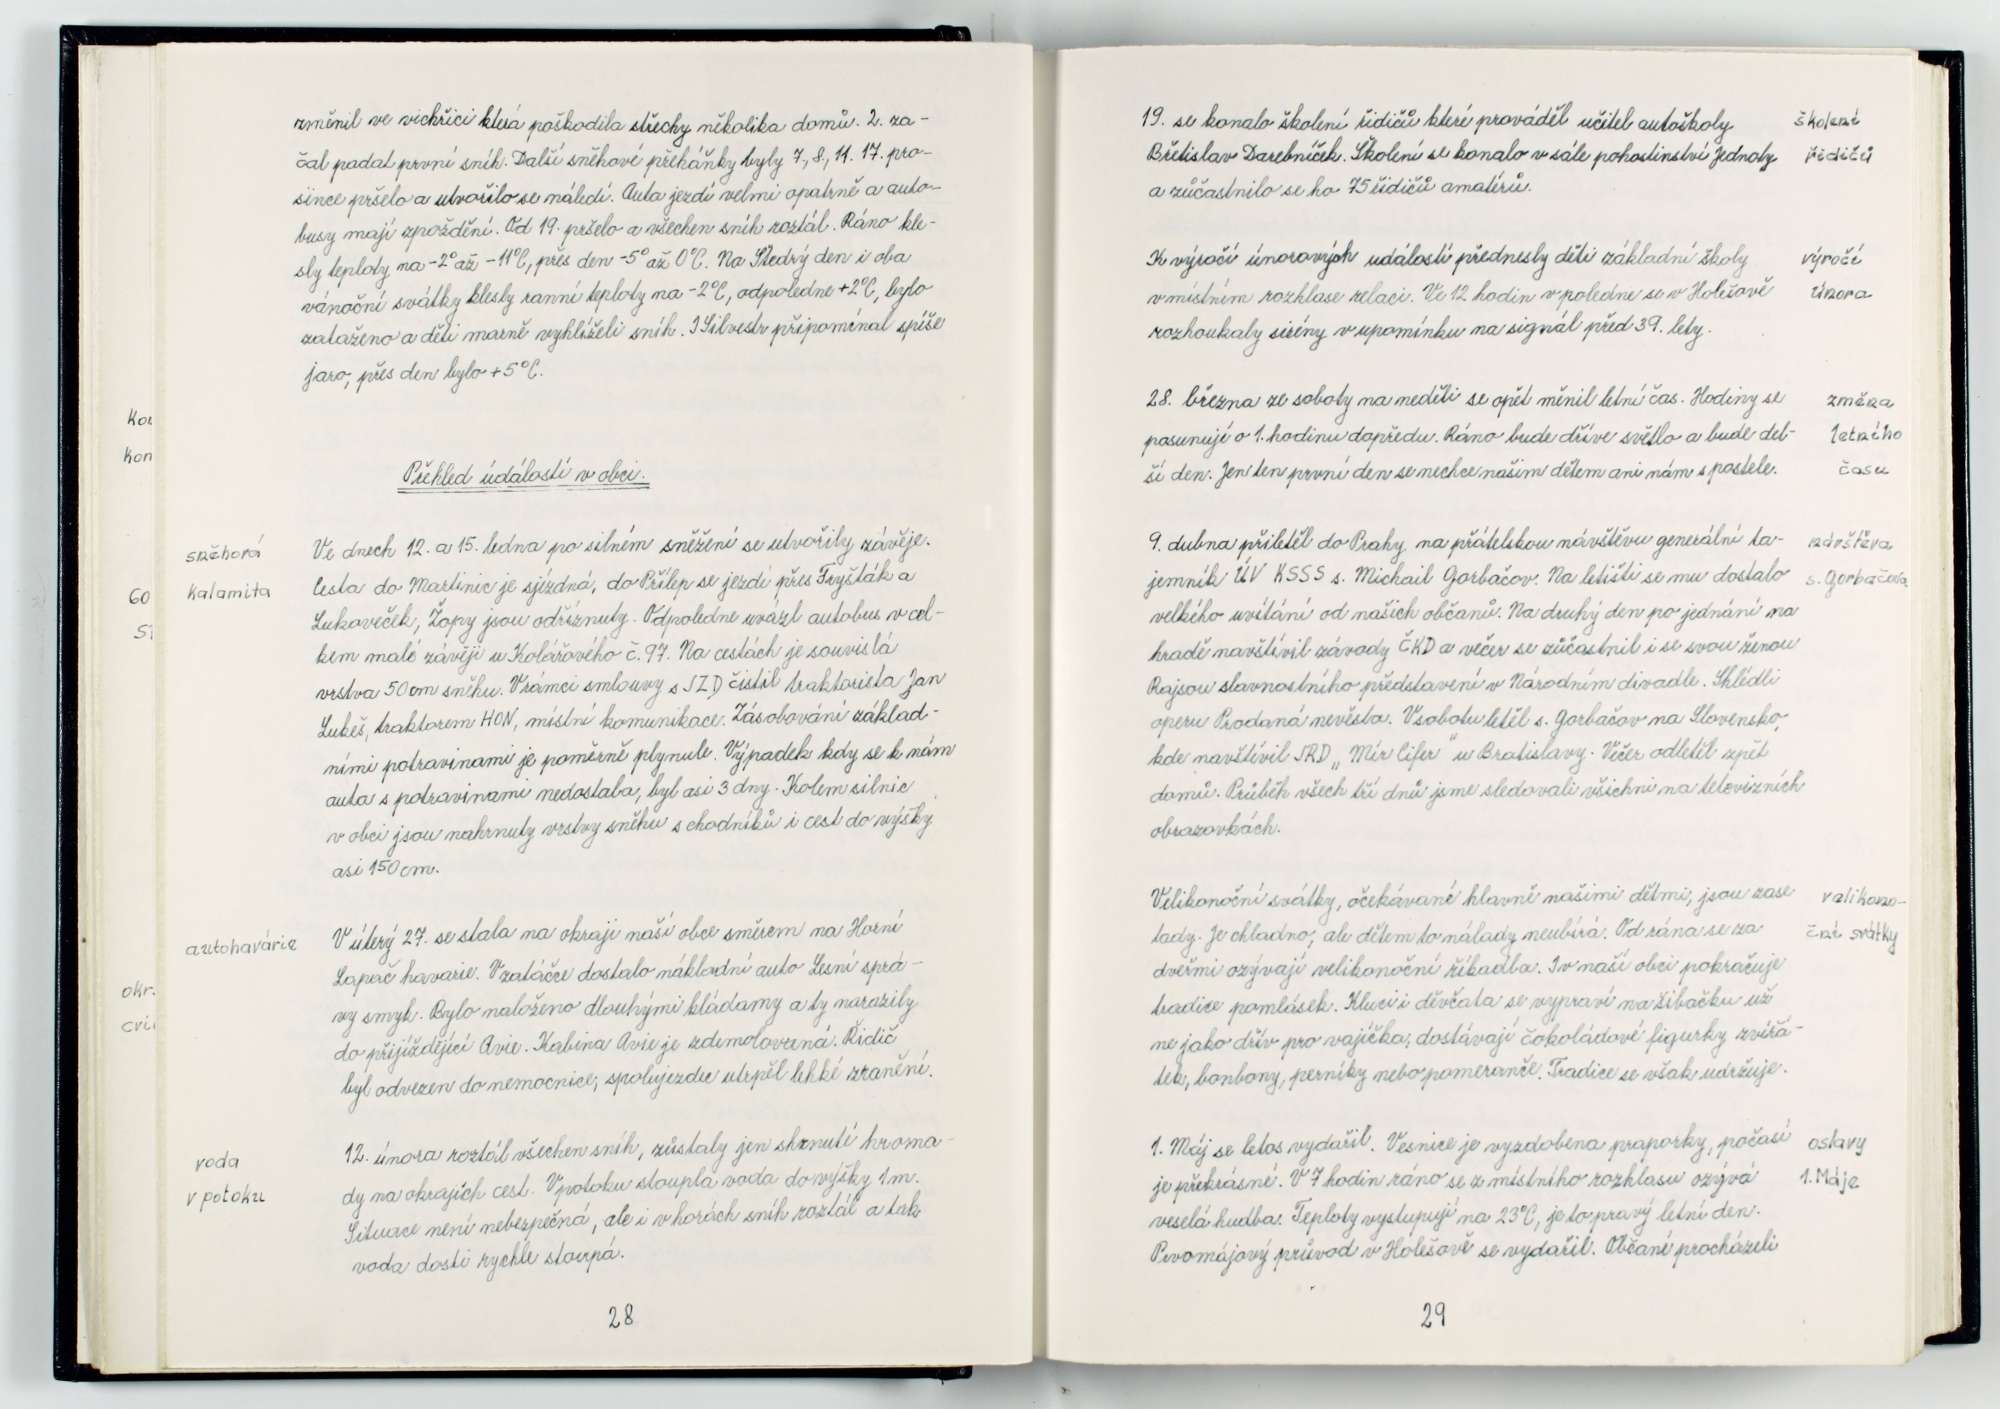 změnil ve vichřici která poškodila střechy několika domů. 2. za-
čal padat první sníh. Další sněhové přeháňky byly 7., 8., 11. 17. pro-
since pršelo a utvořilo se náledí. Auta jezdí velmi opatrně a auto-
busy mají zpoždění. Od 19. pršelo a všechen sníh roztál. Ráno kle-
sly teploty na -2° až -11°C, přes den -5° až 0°C. Na Štedrý den i oba
vánoční svátky klesly ranní teploty na -2°C, odpoledne +2°C, bylo
zataženo a děti marně vyhlížely sníh. I Silvestr připomínal spíše
jaro, přes den bylo +5°C.
Kon
kon
Přehled událostí v obci.
sněhová
kalamita
60
Ve dnech 12. a 15. ledna po silném sněžení se utvořily závěje.
Cesta do Martinic je sjízdná, do Přílep se jezdí přes Fryšták a
Lukoveček, Žopy jsou odříznuty. Odpoledne uvázl autobus v cel-
kem malé závěji u Kolářového č. 97. Na cestách je souvislá
vrstva 50cm sněhu. V rámci smlouvy s JZD čistil traktorista Jan
Lukeš, traktorem HON, místní komunikace. Zásobování základ-
ními potravinami je poměrně plynulé. Výpadek kdy se k nám
auta s potravinami nedostaba, byl asi 3 dny. Kolem silnic
v obci jsou nahrnuty vrstvy sněhu s chodníků i cest do výšky
asi 150cm.
autohavárie
okr.
cvi
V úterý 27. se stala na okraji naší obce směrem na Horní
Lapač havarie. V zatáčce dostalo nákladní auto Lesní sprá-
vy smyk. Bylo naloženo dlouhými kládamy a ty narazily
do přijíždějící Avie. Kabina Avie je zdemolovaná. Řidič
byl odvezen do nemocnice, spolujezdec utrpěl lehké zranění.
voda
v potoku
12. února roztál všechen sníh, zůstaly jen shrnutí hroma-
dy na okrajích cest. V potoku stoupla voda do výšky 1m.
Situace není nebezpečná, ale i v horách sníh roztál a tak
voda dosti rychle stoupá.
28
19. se konalo školení řidičů které prováděl učitel autoškoly
Břetislav Darebníček. Školení se konalo v sále pohostinství Jednoty
a zúčastnilo se ho 75 řidičů amatérů.
školení
řidičů
K výročí únorových událostí přednesly děti základní školy
v místním rozhlase relaci. Ve 12 hodin v poledne se v Holešově
rozhoukaly sirény v upomínku na signál před 39. lety.
výročí
února
28. března ze soboty na neděli se opět měnil letní čas. Hodiny se
posunují o 1. hodinu dopředu. Ráno bude dříve světlo a bude del-
ší den. Jen ten první den se nechce našim dětem ani nám s postele.
změna
letního
času
9. dubna přiletěl do Prahy na přátelskou návštěvu generální ta-
jemník ÚV KSSS s. Michail Gorbačov. Na letišti se mu dostalo
velkého uvítání od našich občanů. Na druhý den po jednání na
hradě navštívil závody ČKD a večer se zůčastnil i se svou ženou
Rajsou slavnostního představení v Národním divadle. Shlédli
operu Prodaná nevěsta. V sobotu letěl s. Gorbačov na Slovensko,
kde navštívil JRD "Mír Cífer" u Bratislavy. Večer odletěl zpět
domů. Průběh všech tří dnů jsme sledovali všichni na televizních
obrazovkách.
návštěva
s. Gorbačova
Velikonoční svátky, očekávané hlavně našimi dětmi, jsou zase
tady. Je chladno, ale dětem to nálady neubírá. Od rána se za
dveřmi ozývají velikonoční říkadla. I v naší obci pokračuje
tradice pomlásek. Kluci i děvčata se vypraví na šibačku už
ne jako dřív pro vajíčka, dostávají čokoládové figurky zvířá-
tek, bonbony, perníky nebo pomeranče. Tradice se však udržuje.
velikono-
ční svátky
1. Máj se letos vydařil. Vesnice je vyzdobena praporky, počasí
je překrásné. V 7 hodin ráno se z místního rozhlasu ozývá
veselá hudba. Teploty vystupují na 23°C, je to pravý letní den.
Prvomájový průvod v Holešově se vydařil. Občané procházeli
oslavy
1. Máje
29